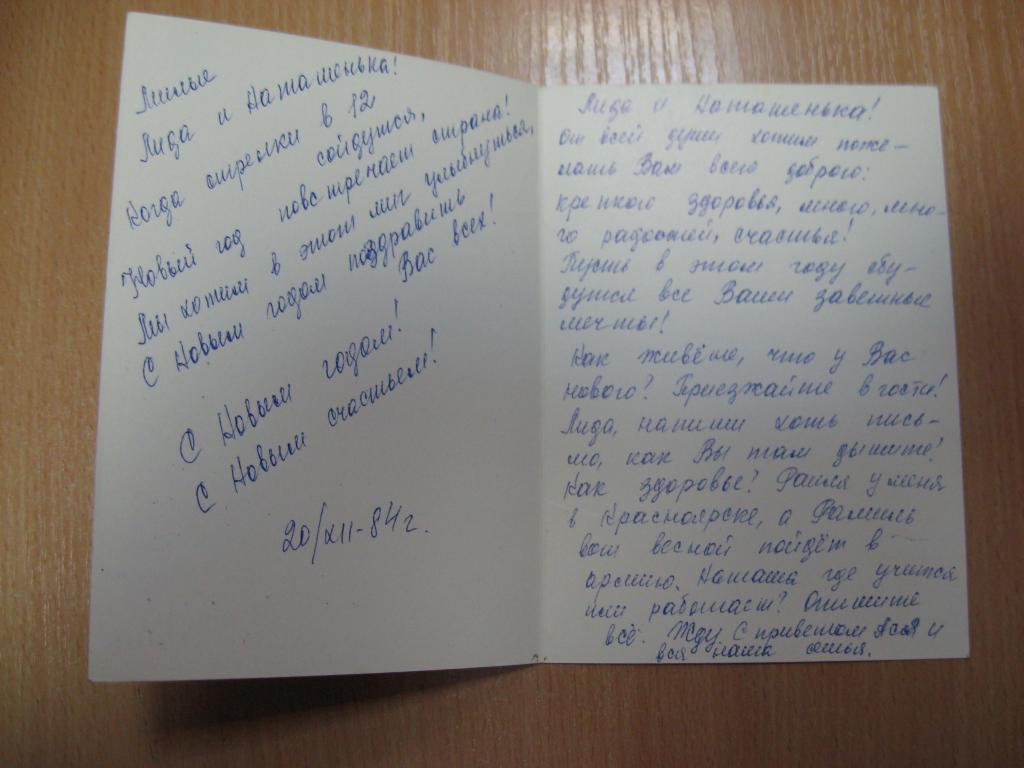 Милые
Лида и Наташенька!
Когда стрелки в 12
сойдутся,
Новый год повстречает страна!
Мы хотим в этот миг улыбнуться,
С Новым годом поздравить
Вас всех!
С Новым годом!
С Новым счастьем!
20/XII-84г.
Лида и Наташенька!
От всей души хотим поже-
лать Вам всего доброго:
крепкого здоровья, много, мно-
го радостей, счастья!
Пусть в этом году сбу-
дутся все Ваши заветные
мечты!
Как живёте, что у Вас
нового? Приезжайте в гости!
Лида, напиши хоть пись-
мо, как Вы там дышите!
Как здоровье? Раиля у меня
в Красноярске, а Рамиль
вот весной пойдёт в
армию. Наташа где учится
или работает? Опишите
всё. Жду. С приветом Ася и
вся наша семья.